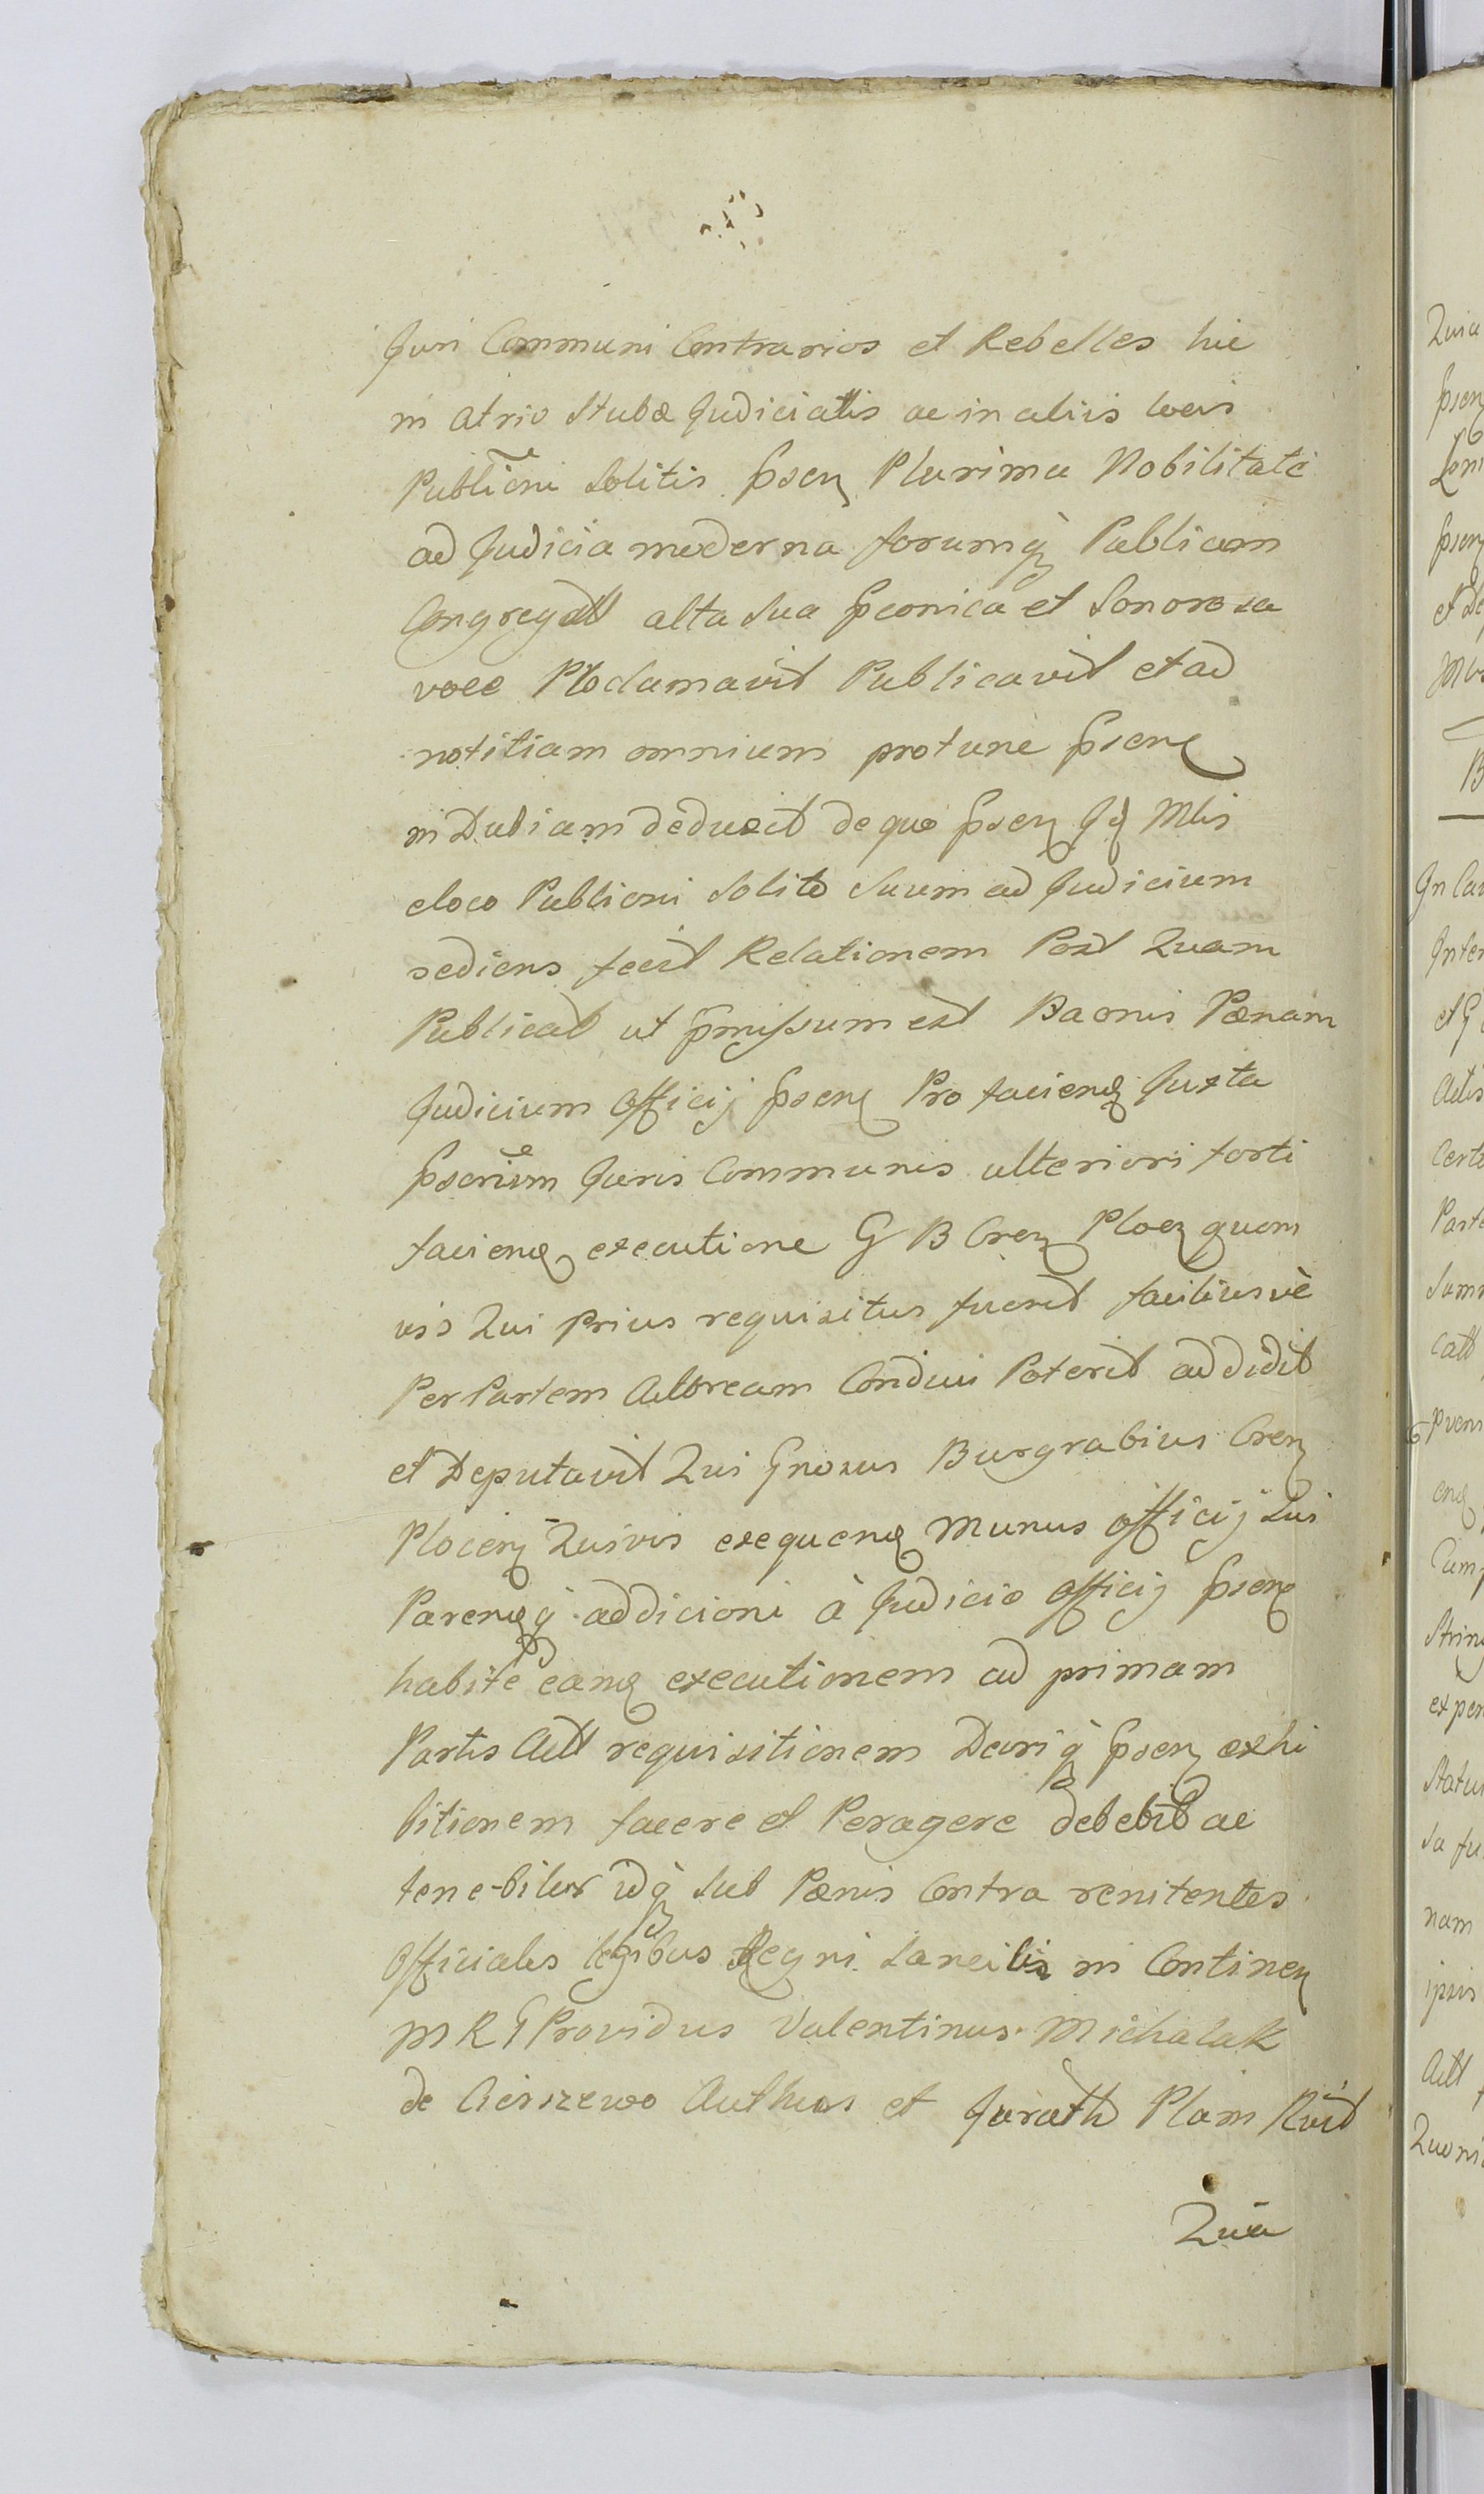 Juri Communi Contrarios et Rebelles hic
in atrio Stubæ Judicialis ac in aliis locis
Publicõni Solitis Pssen Plurima Nobilitate
ad Judicia moderna forumq̀ Publicum
Congregatt alta sua Pconica et Sonorosa
voce Ploclamavit Publicavit et ad
notitiam omnium protunc Pssene
in Dubiam deduxit de quo Pssen Jd Mlis
eloco Publicni Solito Suum ad Judicium
rediens fecit Relationem Post Quam
Publicat ut Pmissum est Baonis Pœnam
Judicium Officij Pssene Pro faciene Juxta
Pscriẽm Juris Communis ulteriori forti
faciene executione G B Cren Plocen quem
vis Qui Prius requisitus fuerit faciliusvè
Per Partem Actoream Condici Poterit addidit
et Deputavit Qui Gnosus Burgrabius Cren
Plocien Quivis exequene Munus officij Sui
Pareneq̀ addicioni à Judicio Officij Pssene
habite eane executionem ad primam
Partis Actt requisitionem Decriq̀ Pssen exhi
bitionem facere et Peragere debebit ac
tene-bitur idq̀ Sub Pœnis Contra renitentes
Officiales legibus Regni Sancitis in Continen
M R G Providus Valentinus Michalak
de Cieszewo Authus et Jurath Plam Rvit
Qua
Quia
In Cau
Inter
et G
Actis
Certo
Parte
Summ
catt
expen
Statu
sa fu
nam
ipsis
Actt
Quoni